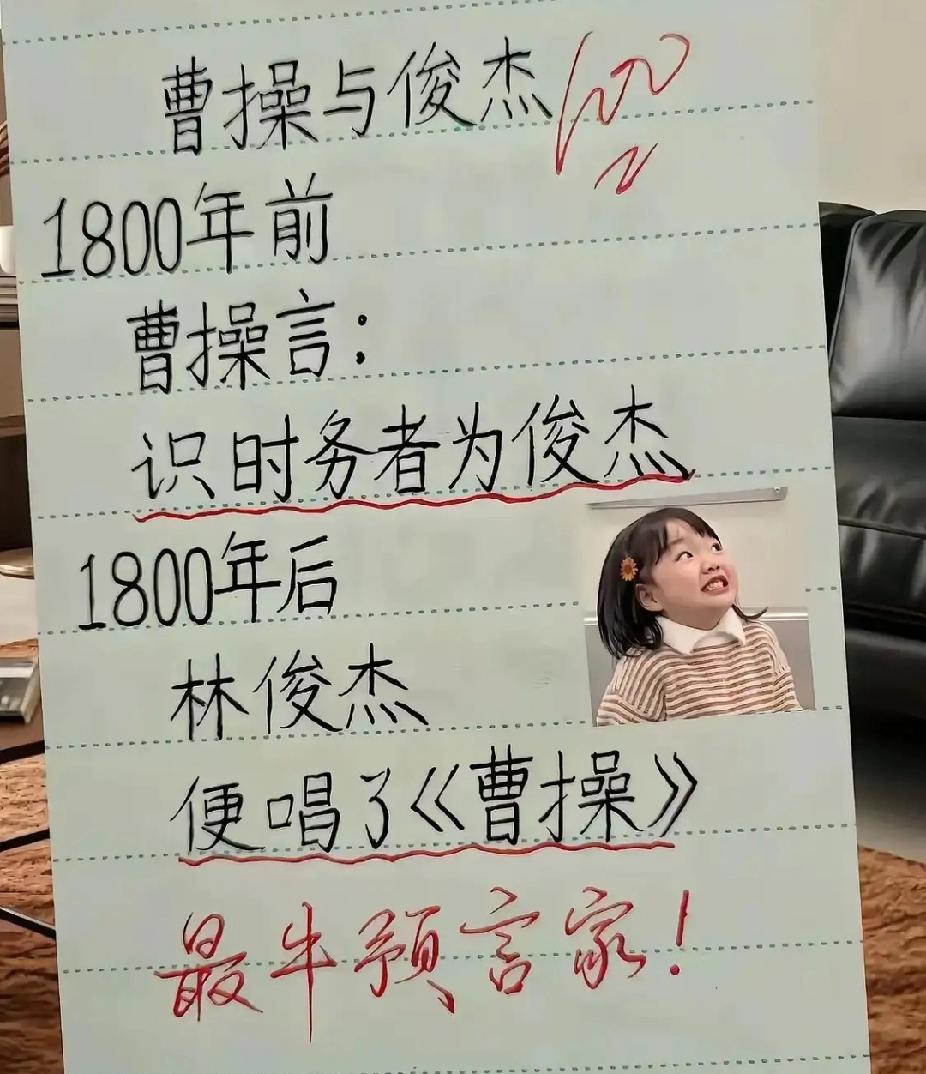 曹操与俊杰 100
1800年前
曹操言：
识时务者为俊杰
1800年后
林俊杰
便唱了《曹操》
最牛预言家！